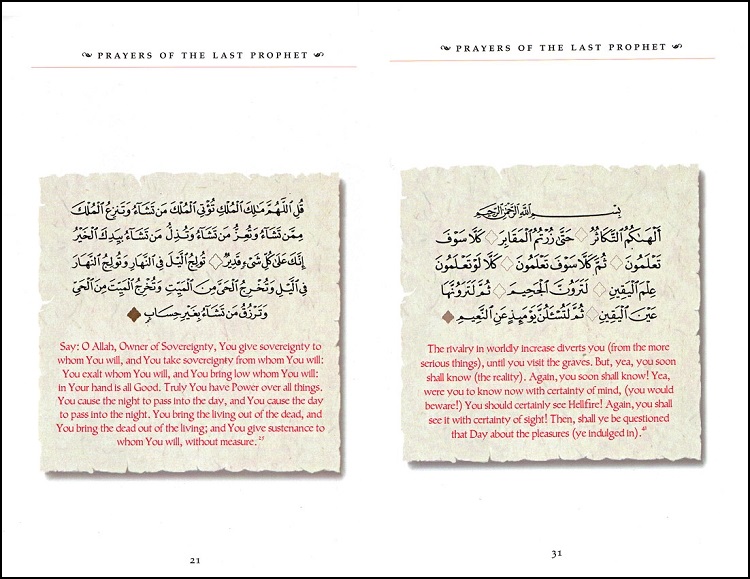 PRAYERS OF THE LAST PROPHET
قُلِ ٱللَّهُمَّ مَٰلِكَ ٱلْمُلْكِ تُؤْتِى ٱلْمُلْكَ مَن تَشَآءُ وَتَنزِعُ ٱلْمُلْكَ
مِمَّن تَشَآءُ وَتُعِزُّ مَن تَشَآءُ وَتُذِلُّ مَن تَشَآءُ بِيَدِكَ ٱلْخَيْرُ
إِنَّكَ عَلَىٰ كُلِّ شَىْءٍ قَدِيرٌ تُولِجُ ٱلَّيْلَ فِى ٱلنَّهَارِ وَتُولِجُ ٱلنَّهَارَ
فِى ٱلَّيْلِ وَتُخْرِجُ ٱلْحَىَّ مِنَ ٱلْمَيِّتِ وَتُخْرِجُ ٱلْمَيِّتَ مِنَ ٱلْحَىِّ
وَتَرْزُقُ مَن تَشَآءُ بِغَيْرِ حِسَابٍ
Say: O Allah, Owner of Sovereignty, You give sovereignty to
whom You will, and You take sovereignty from whom You will:
You exalt whom You will, and You bring low whom You will:
in Your hand is all Good. Truly You have Power over all things.
You cause the night to pass into the day, and You cause the day
to pass into the night. You bring the living out of the dead, and
You bring the dead out of the living; and You give sustenance to
whom You will, without measure.
21
PRAYERS OF THE LAST PROPHET
بِسْمِ ٱللَّهِ ٱلرَّحْمَٰنِ ٱلرَّحِيمِ
أَلْهَىٰكُمُ ٱلتَّكَاثُرُ حَتَّىٰ زُرْتُمُ ٱلْمَقَابِرَ كَلَّا سَوْفَ
تَعْلَمُونَ ثُمَّ كَلَّا سَوْفَ تَعْلَمُونَ كَلَّا لَوْ تَعْلَمُونَ
عِلْمَ ٱلْيَقِينِ لَتَرَوُنَّ ٱلْجَحِيمَ ثُمَّ لَتَرَوُنَّهَا
عَيْنَ ٱلْيَقِينِ ثُمَّ لَتُسْـَٔلُنَّ يَوْمَئِذٍ عَنِ ٱلنَّعِيمِ
The rivalry in worldly increase diverts you (from the more
serious things), until you visit the graves. But, yea, you soon
shall know (the reality). Again, you soon shall know! Yea,
were you to know now with certainty of mind, (you would
beware!) You should certainly see Hellfire! Again, you shall
see it with certainty of sight! Then, shall ye be questioned
that Day about the pleasures (ye indulged in).
31